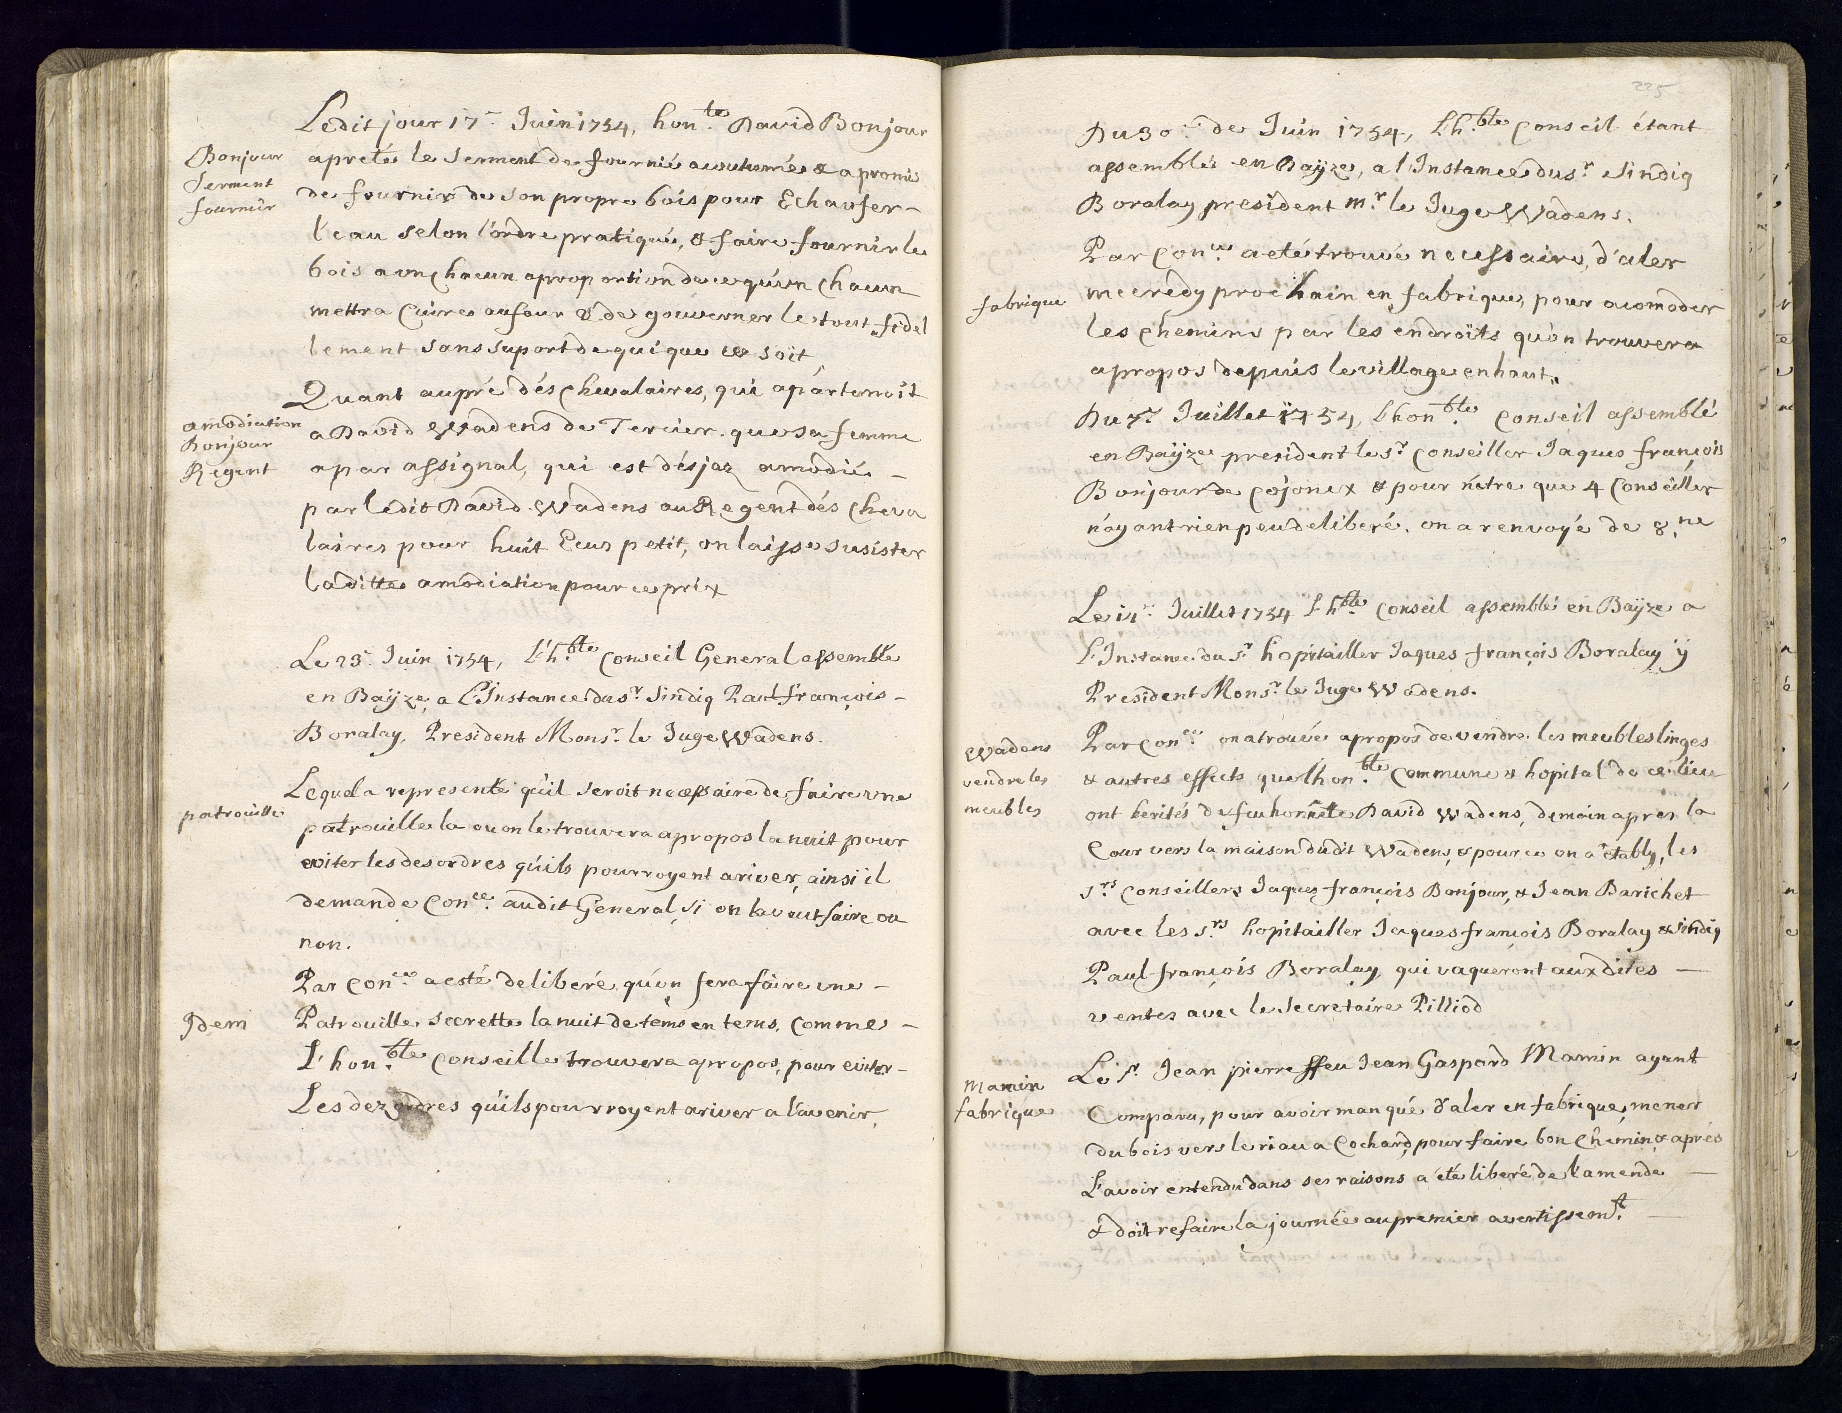 Ledit jour 17.e Juin 1754, hon.te David Bonjour
Bonjour
Serment
fournier
a preté le Serment de fournié acoutumé & a promis
de fournir de son propre bois pour Echaufer
l'eau selon l'ordre pratiqué, & faire fournir le
bois a un chacun a proportion de ce qu'un chacun
mettra Cuire au four & de gouverner le tout fidel
lement sans suport de qui que ce soit
Quant au pré dés Chevalaires, qui apartenoit
amodiation
Bonjour
Regent
a David Wadens de Tercier. que sa femme
a par assignal, qui est désjaz amodié
par ledit David Wadens au Regent dés Cheva
laires pour huit Ecus petit, on laisse susister
laditte amodiation pour ce prix
Le 23. Juin 1754, L'h.ble Conseil General assemblé
en Baÿze, a l'Instance du sr. Sindiq Paul françois
Boralay, President Monsr. le Juge Wadens.
Lequel a representé qu'il seroit necessaire de faire une
patrouille
patrouille la ou on le trouvera apropos la nuit pour
eviter les desordres qu'ils pourroyent ariver, ainsi il
demande Con.ce audit General, si on la veut faire ou
non.
Par Con.ce a esté deliberé qu'on fera faire une
Idem
Patrouille secrette la nuit de tems en tems, comme
L'hon.ble Conseille trouvera apropos, pour eviter
Les dezordres qu'ils pourroyent ariver a l'avenir.
225
Du 30.e de Juin 1754, L'h.ble Conseil étant
assemblé en Baÿze, a l'Instance du sr. Sindiq
Boralay president mr. le Juge Wadens.
Par Con.ce a eté trouvé necessaire, d'aler
fabrique
mecredy prochain en fabrique, pour acomoder
les chemins par les endroits qu'on trouvera
apropos depuis le village en haut.
Du 7.e Juillet 1754, L'hon.ble Conseil assemblé
en Baÿze president le sr. Conseiller Jaques françois
Bonjour de Cojonex & pour n'etre que 4 Conseiller
n'ayant rien peu deliberé. on a renvoyé de 8.ne
Le 14.e Juillet 1754 L'h.ble Conseil assemblé en Baÿze a
L'Instance du Sr. hopitailler Jaques françois Boralay ÿ
President Monsr. le Juge Wadens.
Wadens
vendre les
meubles
Par Con.ce on a trouvé apropos de vendre les meubles linges
& autres effects que l'hon.ble Commune & hopital de ce lieu
ont herités de feu honnete David Wadens, demain apres la
Cour vers la maison dudit Wadens, & pour ce on a etably, les
s.rs Conseillers Jaques françois Bonjour, & Jean Barichet
avec les s.rs hopitailler Jaques françois Boralay & Sindiq
Paul françois Boralay, qui vaqueront aux dites
ventes avec le Secretaire Pilliod
Mamin
fabrique
Le Sr. Jean pierre ffeu Jean Gaspard Mamin ayant
Comparu, pour avoir manqué d'aler en fabrique, mener
du bois vers le riau a Cochard, pour faire bon Chemin & aprés
L'avoir entendu dans ses raisons a eté liberé de l'amende
& doit refaire la journée au premier avertissem.t